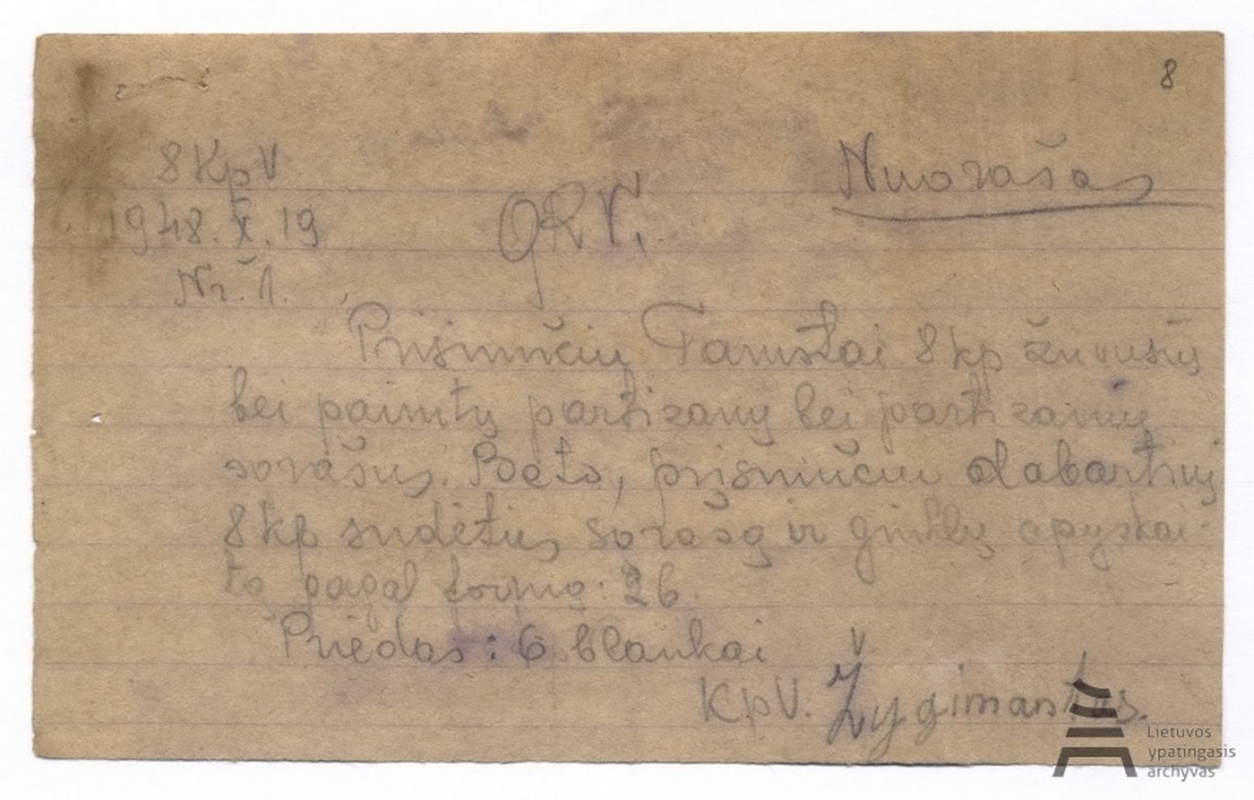 8
8 KpV
Nuorašas
1948.X.19
GRV.
Nr. 1.
Prisiunčiu Tamstai 8 kp žuvusių
bei paimtų partizanų bei partizanių
sąrašus. Be to, prisiunčiu dabartinį
8 kp sudėties sąrašą ir ginklų apyskai-
tą pagal formą: 26.
Priedas: 6 blankai
KpV. Žygimantas.
Lietuvos
ypatingasis
archyvas